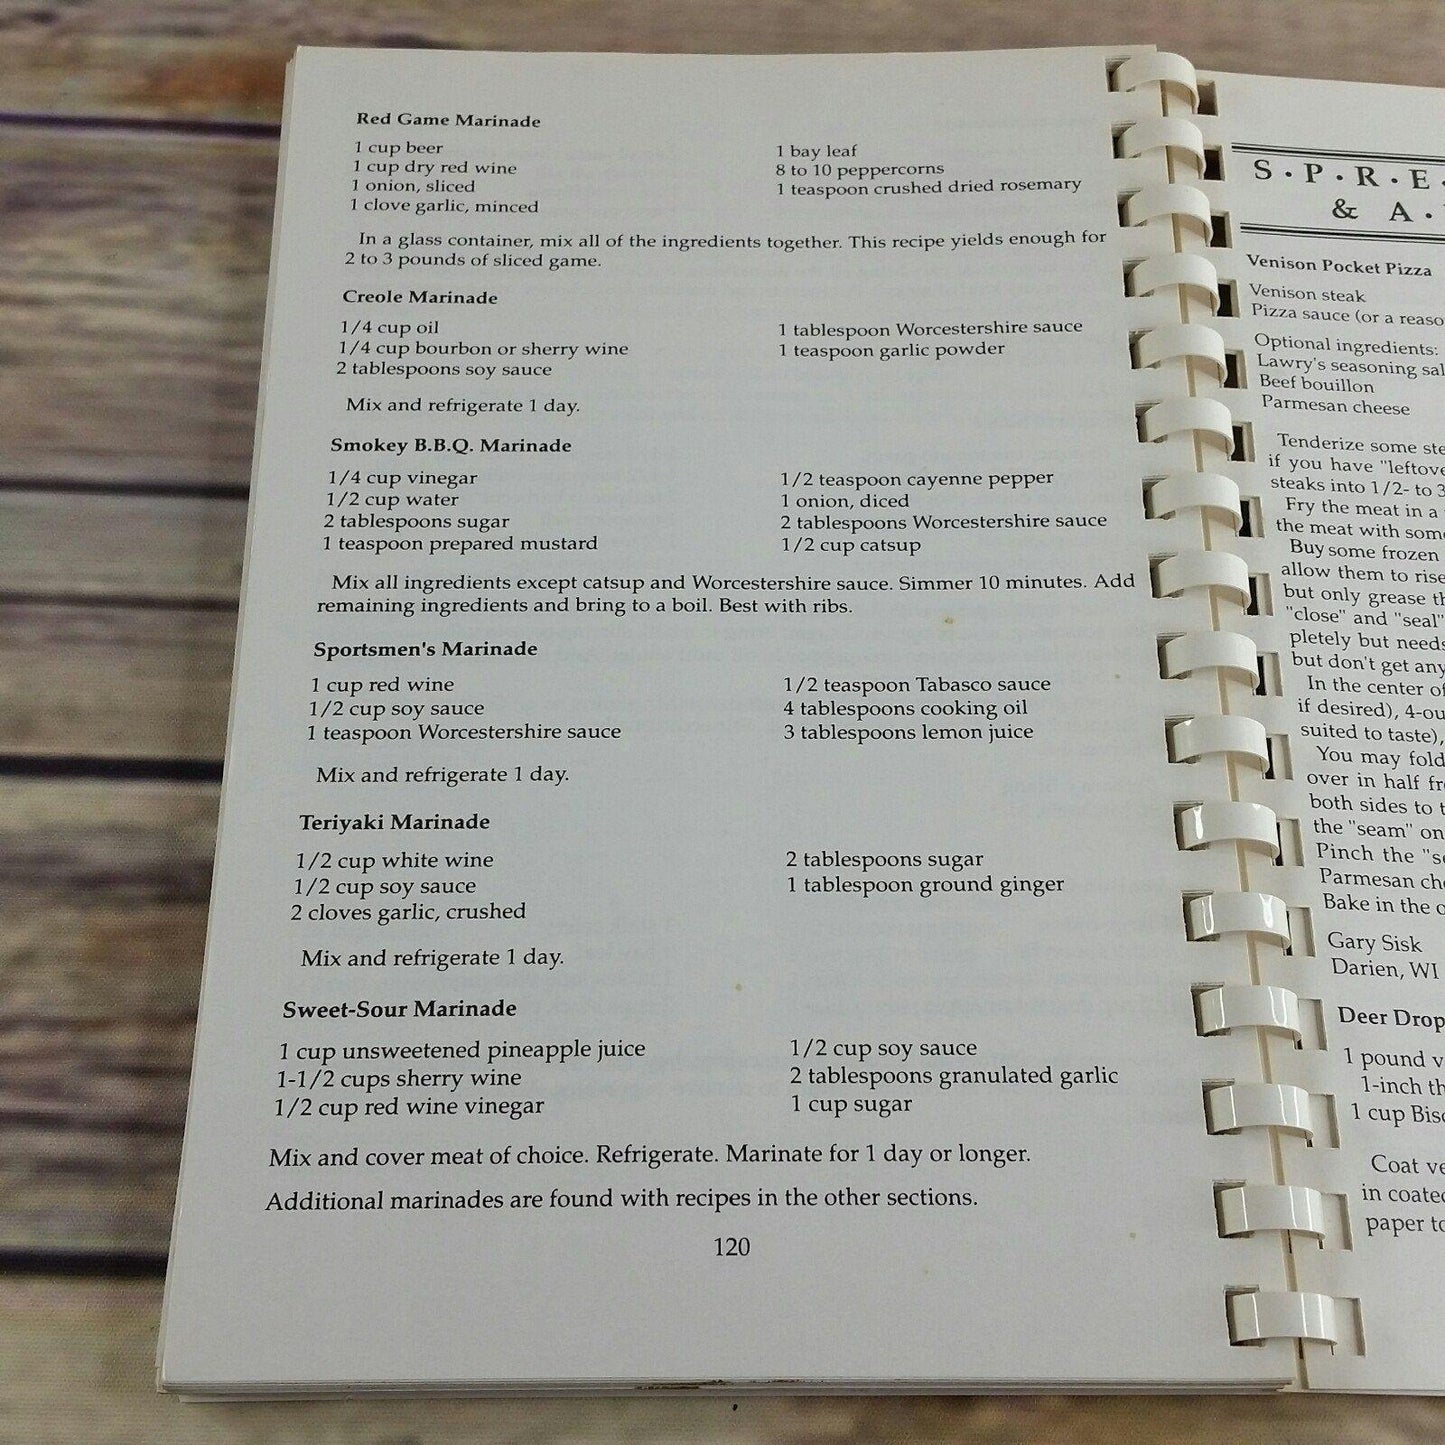 Red Game Marinade
1 cup beer
1 cup dry red wine
1 onion, sliced
1 clove garlic, minced
1 bay leaf
8 to 10 peppercorns
1 teaspoon crushed dried rosemary
In a glass container, mix all of the ingredients together. This recipe yields enough for
2 to 3 pounds of sliced game.
Creole Marinade
1/4 cup oil
1/4 cup bourbon or sherry wine
2 tablespoons soy sauce
1 tablespoon Worcestershire sauce
1 teaspoon garlic powder
Mix and refrigerate 1 day.
Smokey B.B.Q. Marinade
1/4 cup vinegar
1/2 cup water
2 tablespoons sugar
1 teaspoon prepared mustard
1/2 teaspoon cayenne pepper
1 onion, diced
2 tablespoons Worcestershire sauce
1/2 cup catsup
Mix all ingredients except catsup and Worcestershire sauce. Simmer 10 minutes. Add
remaining ingredients and bring to a boil. Best with ribs.
Sportsmen's Marinade
1 cup red wine
1/2 cup soy sauce
1 teaspoon Worcestershire sauce
1/2 teaspoon Tabasco sauce
4 tablespoons cooking oil
3 tablespoons lemon juice
Mix and refrigerate 1 day.
Teriyaki Marinade
1/2 cup white wine
1/2 cup soy sauce
2 cloves garlic, crushed
2 tablespoons sugar
1 tablespoon ground ginger
Mix and refrigerate 1 day.
Sweet-Sour Marinade
1 cup unsweetened pineapple juice
1-1/2 cups sherry wine
1/2 cup red wine vinegar
1/2 cup soy sauce
2 tablespoons granulated garlic
1 cup sugar
Mix and cover meat of choice. Refrigerate. Marinate for 1 day or longer.
Additional marinades are found with recipes in the other sections.
120
S · P · R · E ·
& A ·
Venison Pocket Pizza
Venison steak
Pizza sauce (or a
Optional ingredients:
Lawry's seasoning
Beef bouillon
Parmesan cheese
Tenderize some
if you have
steaks into 1/2- to
Fry the meat in a
the meat with
Buy some frozen
allow them to rise
but only grease
"close" and "seal"
pletely but
but don't get any
In the center of
if desired),
suited to taste),
You may fold
over in half
both sides to
the "seam" on
Pinch the
Parmesan
Bake in the
Gary Sisk
Darien, WI
Deer
1 pound
1-inch
1 cup
Coat
in
paper